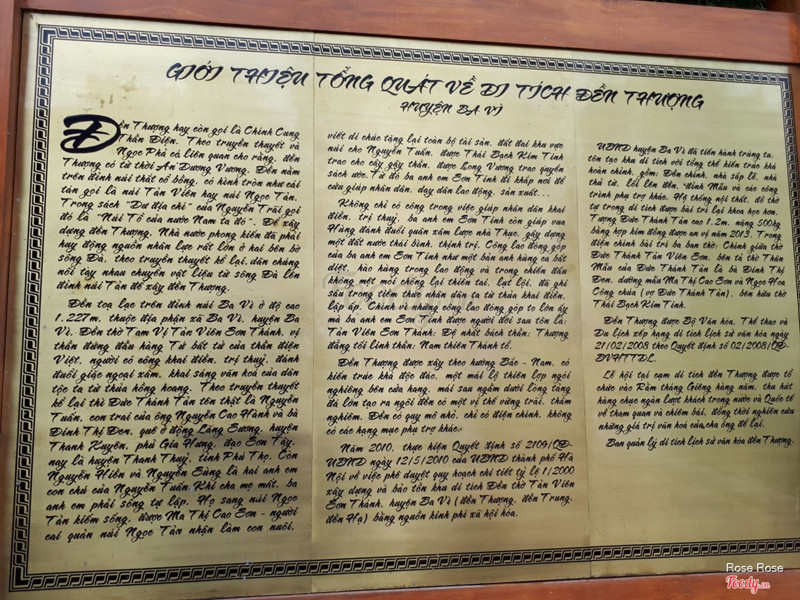 GIỚI THIỆU TỔNG QUÁT VỀ DI TÍCH ĐỀN THƯỢNG
HUYỆN BA VÌ
Đền Thượng hay còn gọi là Chính Cung
Thần Điện. Theo truyền thuyết và
Ngọc Phả có liên quan cho rằng, đền
Thượng có từ thời An Dương Vương. Đền nằm
trên đỉnh núi thắt cổ bồng, có hình tròn như cái
tán gọi là núi Tản Viên hay núi Ngọc Tản.
Trong sách "Dư địa chí" của Nguyễn Trãi gọi
đó là "Núi Tổ của nước Nam ta đó". Để xây
dựng đền Thượng. Nhà nước phong kiến đã phải
huy động nguồn nhân lực rất lớn ở hai bên bờ
sông Đà, theo truyền thuyết kể lại, dân chúng
nối tay nhau chuyển vật liệu từ sông Đà lên
đỉnh núi Tản để xây đền Thượng.
Đền toạ lạc trên đỉnh núi Ba Vì ở độ cao
1.227m, thuộc địa phận xã Ba Vì, huyện Ba
Vì. Đền thờ Tam Vị Tản Viên Sơn Thánh, vị
thần đứng đầu hàng Tứ bất tử của thần điện
Việt, người có công khai điền, trị thuỷ, đánh
đuổi giặc ngoại xâm, khai sáng văn hoá của dân
tộc ta từ thủa hồng hoang. Theo truyền thuyết
kể lại thì Đức Thánh Tản tên thật là Nguyễn
Tuấn, con trai của ông Nguyễn Cao Hành và bà
Đinh Thị Đen, quê ở động Lăng Sương, huyện
Thanh Xuyên, phủ Gia Hưng, đạo Sơn Tây,
nay là huyện Thanh Thuỷ, tỉnh Phú Thọ. Còn
Nguyễn Hiển và Nguyễn Sùng là hai anh em
con chú của Nguyễn Tuấn. Khi cha mẹ mất, ba
anh em phải sống tự lập. Họ sang núi Ngọc
Tản kiếm sống, được Ma Thị Cao Sơn - người
cai quản núi Ngọc Tản nhận làm con nuôi,
viết di chúc tặng lại toàn bộ tài sản, đất đai khu vực
núi cho Nguyễn Tuấn, được Thái Bạch Kim Tinh
trao cho cây gậy thần, được Long Vương trao quyển
sách ước. Từ đó ba anh em Sơn Tinh đi khắp nơi để
cứu giúp nhân dân, dạy dân lao động, sản xuất...
Không chỉ có công trong việc giúp nhân dân khai
điền, trị thuỷ, ba anh em Sơn Tinh còn giúp vua
Hùng đánh đuổi quân xâm lược nhà Thục, gây dựng
một đất nước thái bình, thịnh trị. Công lao đóng góp
của ba anh em Sơn Tinh như một bản anh hùng ca bất
diệt, hào hùng trong lao động và trong chiến đấu
không mệt mỏi chống lại thiên tai, lụt lội, đã ghi
sâu trong tiềm thức nhân dân ta từ thủa khai điền,
lập ấp. Chính vì những công lao đóng góp to lớn ấy
mà ba anh em Sơn Tinh được người đời sau tôn là:
Tản Viên Sơn Thánh; Đệ nhất bách thần; Thượng
đẳng tối linh thần; Nam thiên Thánh tổ.
Đền Thượng được xây theo hướng Bắc - Nam, có
kiến trúc khá độc đáo, một mái lộ thiên lợp ngói
nghiêng bên cửa hang, mái sau ngầm dưới lòng tảng
đá lớn tạo ra ngôi đền có một vị thế vững trãi, thâm
nghiêm. Đền có quy mô nhỏ, chỉ có điện chính, không
có các hạng mục phụ trợ khác.
Năm 2010, thực hiện Quyết định số 2109/QĐ-
UBND ngày 12/5/2010 của UBND thành phố Hà
Nội về việc phê duyệt quy hoạch chi tiết tỷ lệ 1/2000
xây dựng và bảo tồn khu di tích Đền thờ Tản Viên
Sơn Thánh, huyện Ba Vì (đền Thượng, đền Trung,
đền Hạ) bằng nguồn kinh phí xã hội hóa.
UBND huyện Ba Vì đã tiến hành trùng tu,
tôn tạo khu di tích với tổng thể kiến trúc khá
hoàn chỉnh, gồm: Đền chính, nhà sắp lễ, nhà
thủ từ, lối lên đền, đình Mẫu và các công
trình phụ trợ khác. Hệ thống nội thất, đồ thờ
tự trong di tích được bài trí lại khoa học hơn.
Tượng Đức Thánh Tản cao 1.2m, nặng 500kg
bằng hợp kim đồng được an vị năm 2013. Trong
điện chính bài trí ba ban thờ: Chính giữa thờ
Đức Thánh Tản Viên Sơn, bên tả thờ Thân
Mẫu của Đức Thánh Tản là bà Đinh Thị
Đen, dưỡng mẫu Ma Thị Cao Sơn và Ngọc Hoa
Công chúa (vợ Đức Thánh Tản), bên hữu thờ
Thái Bạch Kim Tinh.
Đền Thượng được Bộ Văn hóa, Thể thao và
Du lịch xếp hạng di tích lịch sử văn hóa ngày
21/02/2008 theo Quyết định số 02/2008/QĐ-
BVHTTDL.
Lễ hội tại cụm di tích đền Thượng được tổ
chức vào Rằm tháng Giêng hàng năm, thu hút
hàng chục ngàn lượt khách trong nước và Quốc tế
về tham quan và chiêm bái, đồng thời nghiên cứu
những giá trị văn hoá của cha ông để lại.
Ban quản lý di tích lịch sử văn hóa đền Thượng.
Rose Rose
Foody.vn